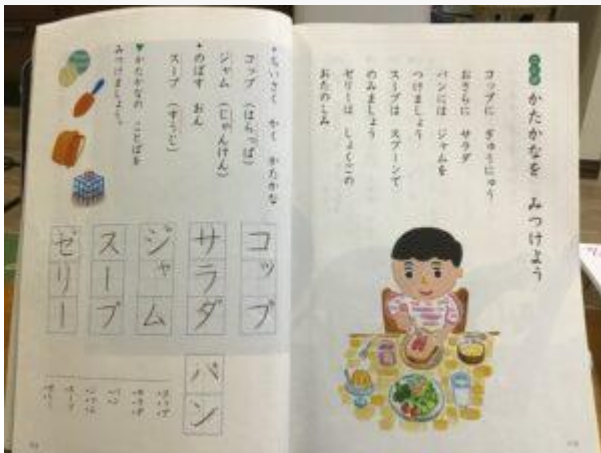 かたかなを みつけよう
コップに ぎゅうにゅう
おさらに サラダ
パンには ジャムを
つけましょう
スープは スプーンで
のみましょう
ゼリーは しょくごの
おたのしみ
ちいさく かく かたかな
コップ (はらっぱ)
ジャム (じゃんけん)
のばす おん
スープ (すうじ)
かたかなの ことばを
みつけましょう。
コップ
サラダ
ジャム
スープ
ゼリー
パン